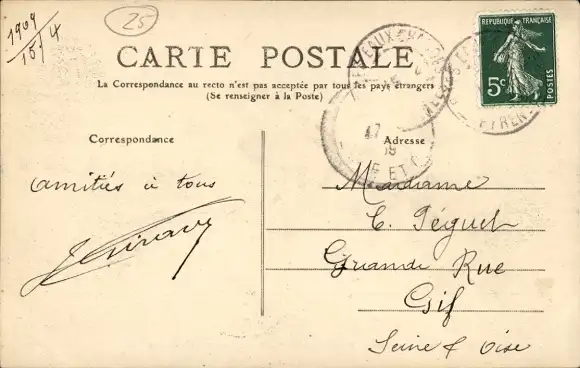 1909
15/4
25
CARTE POSTALE
La Correspondance au recto n'est pas acceptée par tous les pays étrangers
(Se renseigner à la Poste)
RÉPUBLIQUE FRANÇAISE
5c
Correspondance
Adresse
amitiés à tous
Madame
C. Téguel
Grande Rue
Gif
Seine & Oise